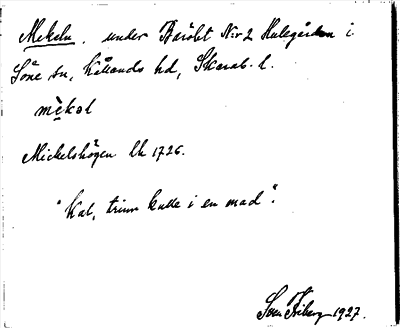 Mekeln. under Bäslet N:r 2 Hulegården i
Söne sn, Kållands hd, Skarab. l.
mèkəl
Mickelshögen Lh 1726.
"Kal, trinn kulle i en mad".
Sven Friberg 1927.